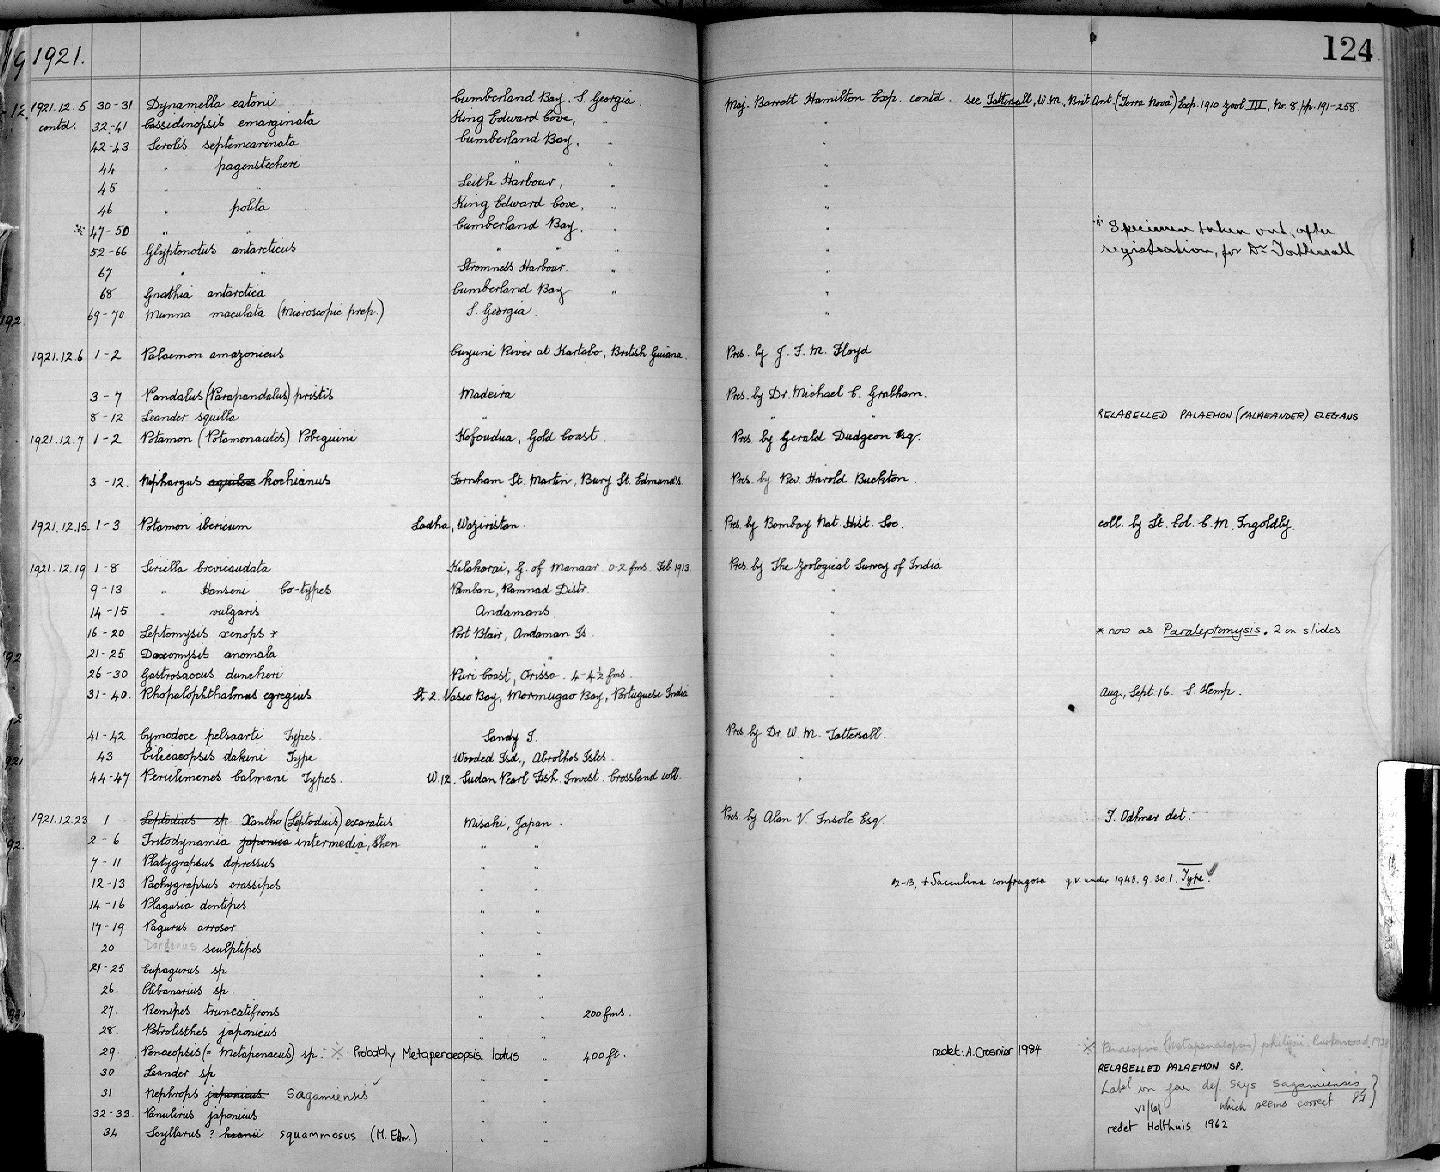 1921. 124
1921.12.5 30-31 Dynamella eatoni Cumberland Bay. S. Georgia. Maj. Barrett Hamilton Exp. contd. see Tattersall, W.M. Brit. Ant. ("Terra Nova") Exp. 1910 Zool III, No. 8 pp. 191-258
contd. 32-41 Cassidinopsis emarginata King Edward Cove, "
42-43 Serolis septemcarinata Cumberland Bay. "
44 " pagenstecheri "
45 " " Leith Harbour, "
46 " polita King Edward Cove, "
* 47-50 " " Cumberland Bay. " * Specimen taken out, after
52-66 Glyptonotus antarcticus " " registration, for Dr Tattersall
67 " " Stromness Harbour. "
68 Gnathia antarctica Cumberland Bay "
69-70 Munna maculata (Microscopic prep.) S. Georgia. "
1921.12.6 1-2 Palaemon amazonicus Cuyuni River at Kartabo, British Guiana. Pres. by J. F. M. Floyd
3-7 Pandalus (Parapandalus) pristis Madeira Pres. by Dr. Michael C. Grabham.
8-12 Leander squilla " " " RELABELLED PALAEMON (PALAEANDER) ELEGANS
1921.12.7 1-2 Potamon (Potamonautes) Pobeguini Kofoudua, Gold Coast. Pres. by Gerald Dudgeon Esq.
3-12. Niphargus aquilex kochianus Fornham St. Martin, Bury St. Edmunds. Pres. by Rev. Harold Buckton.
1921.12.15 1-3 Potamon ibericum Ladha, Waziristan. Pres. by Bombay Nat. Hist. Soc. coll. by Lt. Col. C. M. Ingoldby.
1921.12.19 1-8 Siriella brevicaudata Kilakarai, G. of Manaar. 0-2 fms. Feb 1913. Pres. by The Zoological Survey of India
9-13 " Hanseni Co-types Pamban, Ramnad Distr. "
14-15 " vulgaris Andamans "
16-20 Leptomysis xenops * Port Blair, Andaman Is. " * now as Paraleptomysis. 2 on slides
21-25 Doxomysis anomala " "
26-30 Gastrosaccus dunckeri Puri Coast, Orissa. 4-4½ fms. "
31-40. Rhopalophthalmus egregius St 2. Vasco Bay, Mormugao Bay, Portuguese India " Aug, Sept. 16. S. Kemp.
41-42 Cymodoce pelsaerti Types. Sandy I. Pres by Dr W. M. Tattersall.
43 Cilicaeopsis dakini Type Wooded Isd., Abrolhos Isles. "
44-47 Periclimenes Calmani Types. W.12. Sudan Pearl Fish. Invest. Crossland coll. "
1921.12.23 1 Leptodius sp. Xantho (Leptodius) exaratus Misaki, Japan. Pres. by Alan V Insole Esq. T. Odhner det.
2-6 Tritodynamia japonica intermedia, Shen " "
7-11 Platygrapsus depressus " "
12-13 Pachygrapsus crassipes " " 12-13, + Sacculina confragosa q.v. under 1948.9.30.1. Type
14-16 Plagusia dentipes " "
17-19 Pagurus arrosor " "
20 Dardanus sculptipes " "
21-25 Eupagurus sp " "
26 Clibanarius sp " "
27. Remipes truncatifrons " " 200 fms.
28. Petrolisthes japonicus " "
29 Penaeopsis (= Metapenaeus) sp. * Probably Metapenaeopsis latus " 400 ft. redet: A. Crosnier 1984
30 Leander sp " " RELABELLED PALAEMON SP.
31 Nephrops japonicus sagamiensis " " Label in jar def. says sagamiensis
32-33. Panulirus japonicus " " which seems correct
34 Scyllarus ? squammosus (M. Edw.) " " redet Holthuis 1962